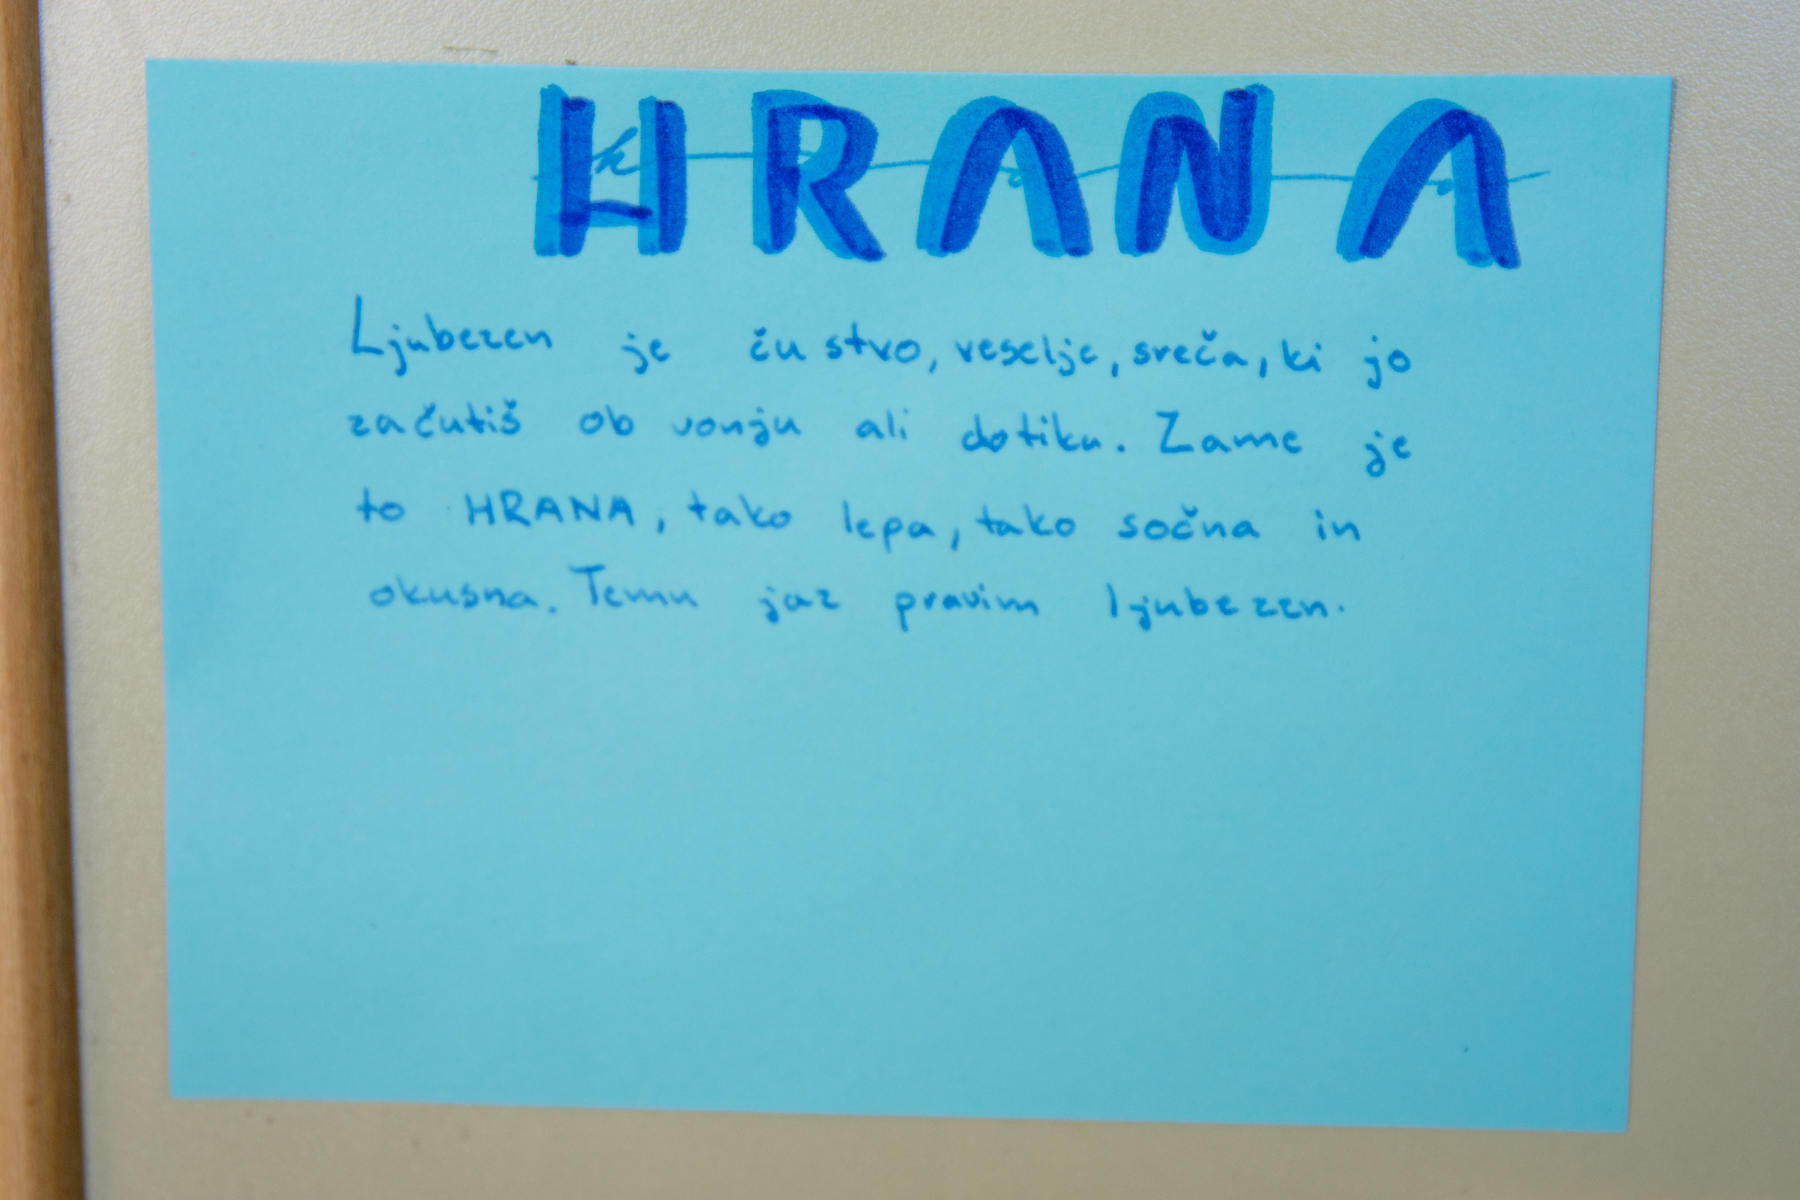 HRANA
Ljubezen je čustvo, veselje, sreča, ki jo
začutiš ob vonju ali dotiku. Zame je
to HRANA, tako lepa, tako sočna in
okusna. Temu jaz pravim ljubezen.